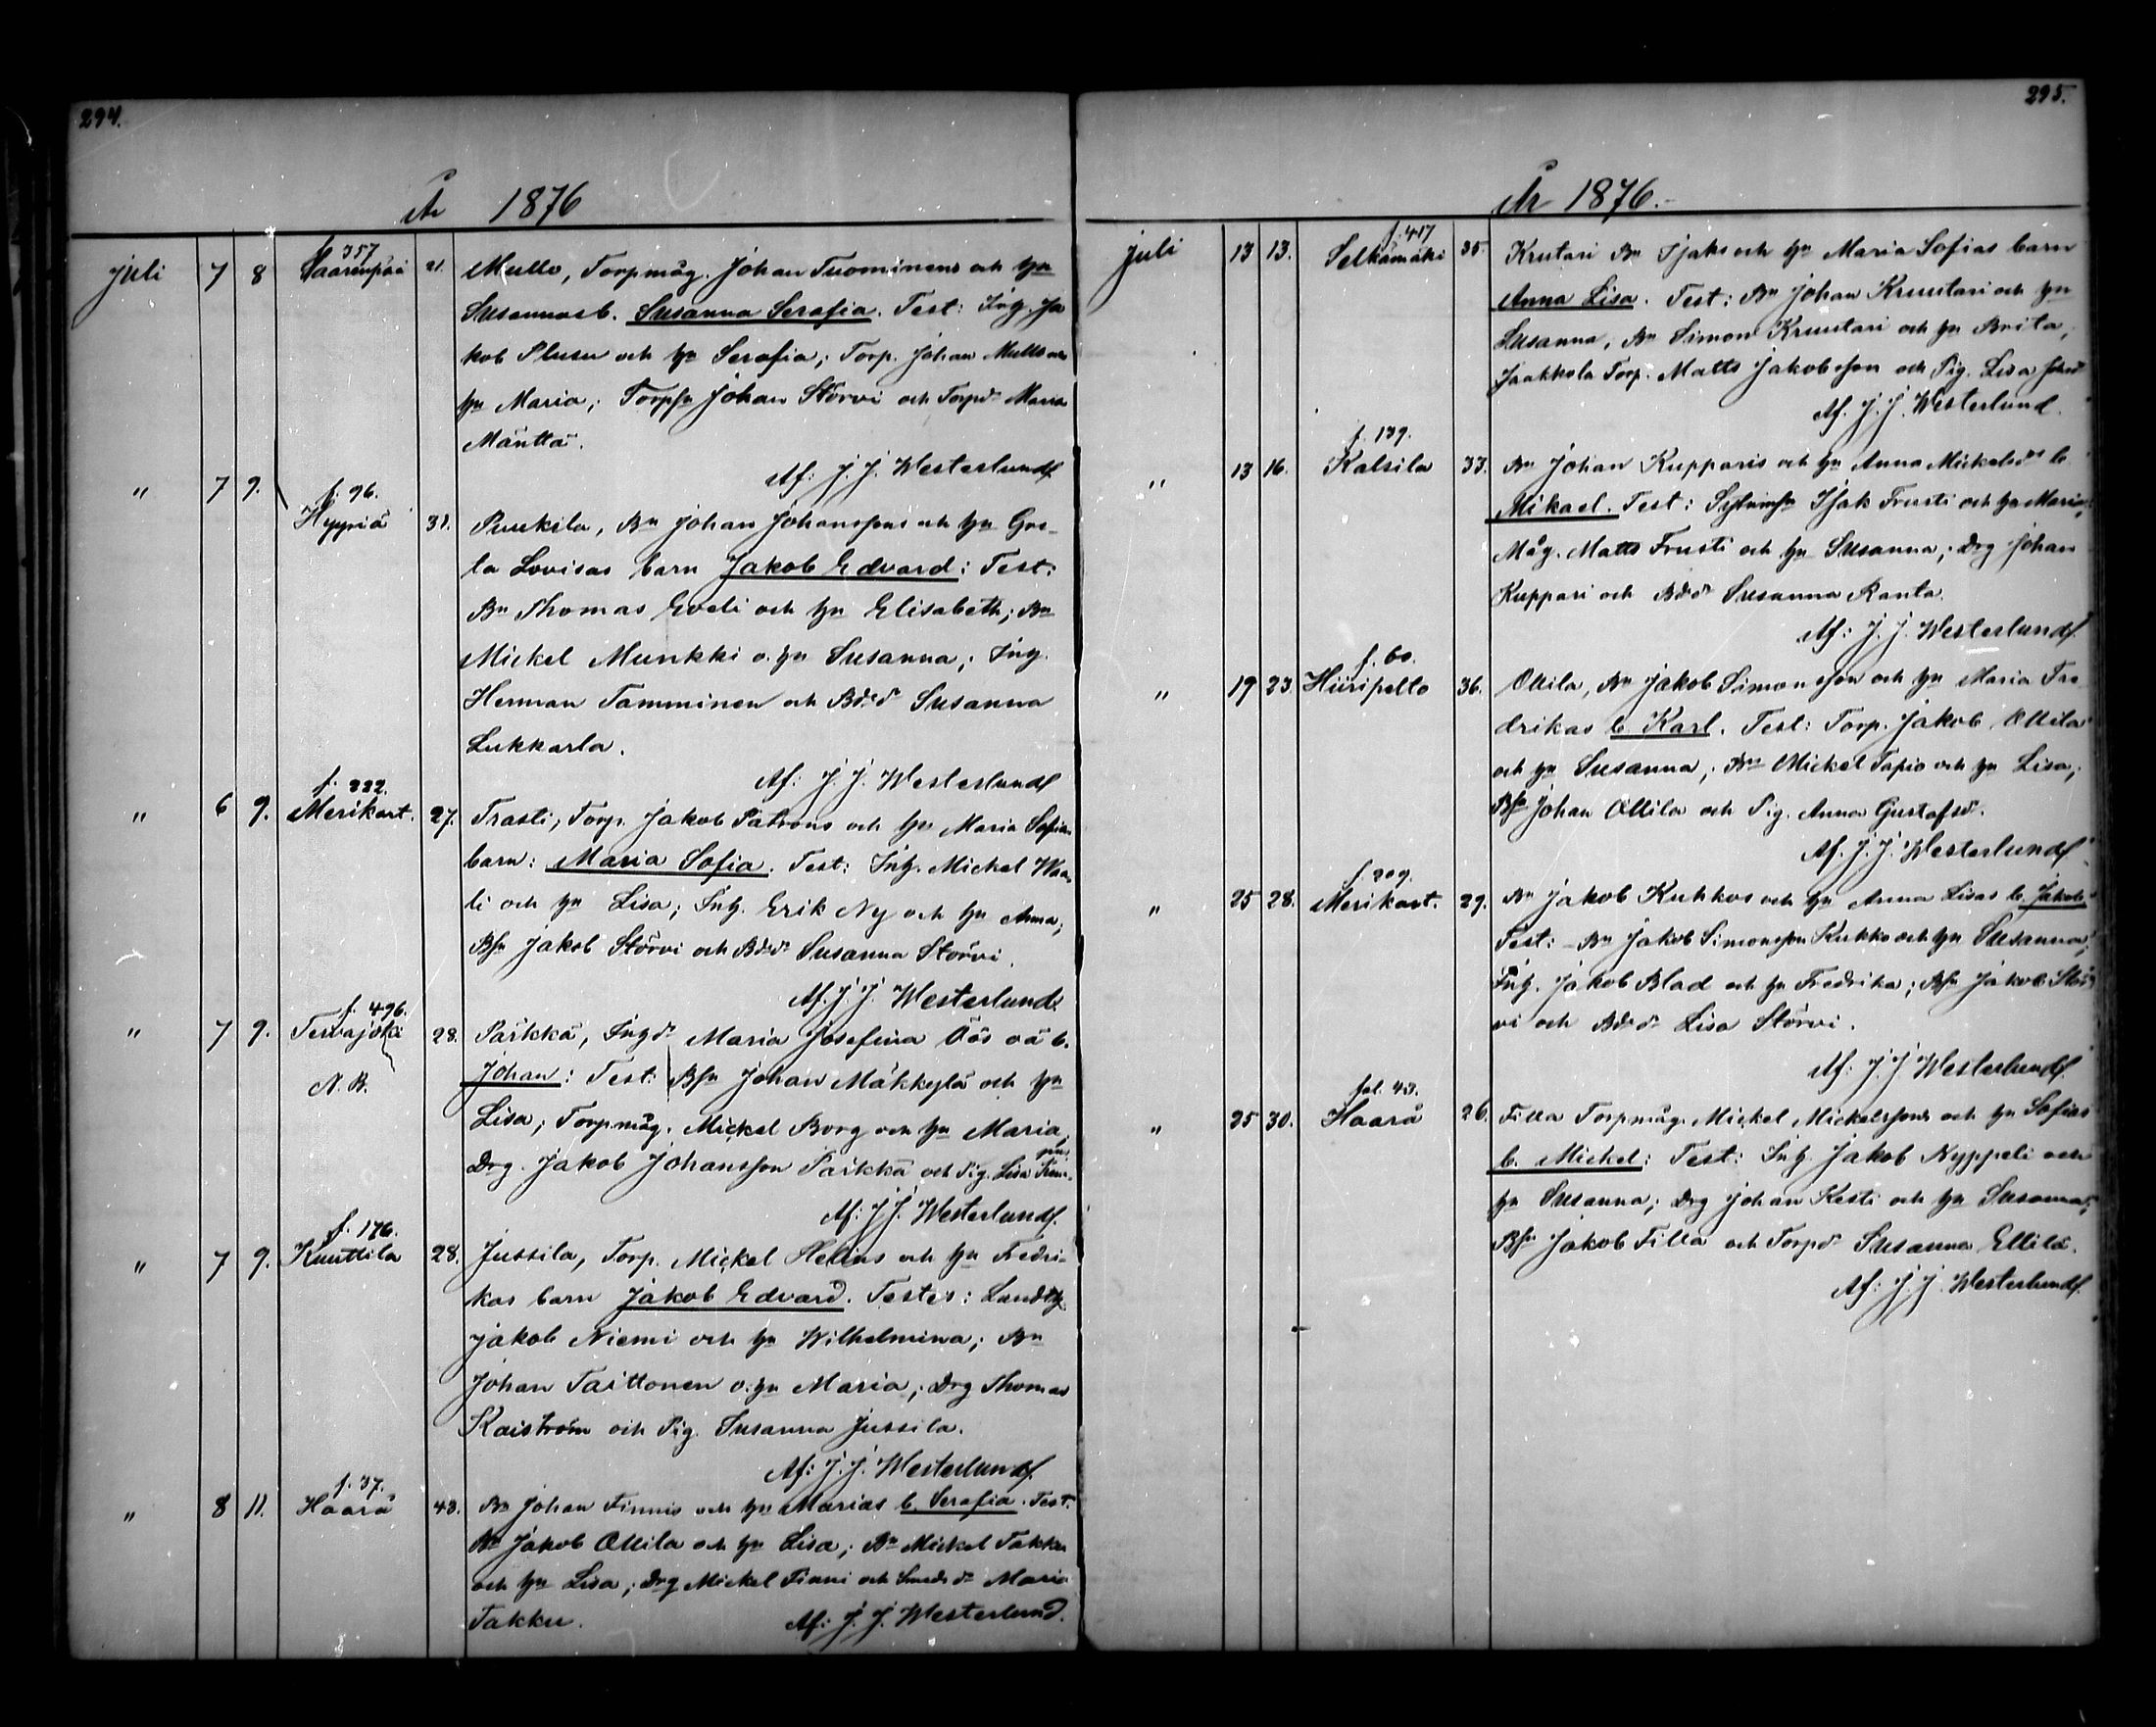 294.
År 1876
juli 7 8 357 Saarenpää 21. Mullo, Torpmåg. Johan Tuominens och hu
Susannas b. Susanna Serafia. Test: Inh. Ja
kob Plusu och hu Serafia; Torp. Johan Mullo och
hu Maria; Torpsn Johan Störvi och Torpdr Maria
Mänttä.
Af: J. J. Westerlund
" 7 9. f. 96. Hyyriä 31. Puukila, Bn Johan Johanssons och hu Gre-
ta Lovisas barn Jakob Edvard: Test:
Bn Thomas Eveli och hu Elisabeth; Bn
Mickel Munkki o. hu Susanna; Inh.
Herman Tamminen och Bdr Susanna
Lukkarla.
Af: J. J. Westerlund
" 6 9. f. 222. Merikart. 27. Trasti, Torp. Jakob Patrons och hu Maria Sofias
barn: Maria Sofia. Test: Inh. Mickel Waa-
li och hu Lisa; Inh. Erik Ny och hu Anna;
Bsn Jakob Störvi och Bdr Susanna Störvi.
Af. J. J. Westerlund
" 7 9. f. 496. Tervajoki 28. Pärkkä, Inhdr Maria Josefina Öös oä b.
N. B. Johan: Test: Bsn Johan Mäkkylä och hu
Lisa; Torpmåg. Mickel Borg och hu Maria;
Drg. Jakob Johansson Pärkkä och Pig. Lisa
Af: J. J. Westerlund.
" 7 9. f. 176. Kuuttila 28. Jussila, Torp. Mickel Helins och hu Fredri-
kas barn Jakob Edvard. Testes: Landth
Jakob Niemi och hu Wilhelmina; Bn
Johan Taittonen o. hu Maria; Drg Thomas
Kaiström och Pig. Susanna Jussila.
Af: J. J. Westerlund.
" 8 11. f. 37. Haarä 43. Bn Johan Finnis och hu Marias b. Serafia. Test.
Bn Jakob Ollila och hu Lisa; Bn Mickel Takku
och hu Lisa; Drg Mickel Finni och Smedsdr Maria
Takku. Af: J. J. Westerlund.
295.
År 1876.
juli 13 13. f. 417 Selkämäki 35. Krutari Bn Isaks och hu Maria Sofias barn
Anna Lisa. Test: Bn Johan Kruutari och hu
Susanna; Bn Simon Kruutari och hu Brita;
Jaakkola Torp. Matts Jakobsson och Pig. Lisa
Af. J. J. Westerlund.
" 13 16. f. 139. Kalsila 33. Bn Johan Kupparis och hu Anna Mickelsdrs b.
Mikael. Test: Isak Frusti och hu Maria;
Måg. Matts Frusti och hu Susanna; Drg Johan
Kuppari och Bdr Susanna Ranta.
Af: J. J. Westerlund.
" 19 23. f. 60. Hiiripelto 36. Ollila, Bn Jakob Simonsson och hu Maria Fre-
drikas b. Karl. Test: Torp. Jakob Ollila
och hu Susanna; Bn Mickel Tapio och hu Lisa;
Bsn Johan Ollila och Pig. Anna Gustafsdr.
Af. J. J. Westerlund
" 25 28. f. 209. Merikart. 29. Bn Jakob Kuhkos och hu Anna Lisas b. Jakob
Test: Bn Jakob Simonsson Kukko och hu Susanna;
Inh. Jakob Blad och hu Fredrika; Bsn Jakob Stör
vi och Bdr Lisa Störvi.
Af: J. J. Westerlund
" 25 30. fol. 43. Haarä 26. Filla Torpmåg. Mickel Mickelssons och hu Sofias
b. Mickel: Test: Inh. Jakob Nyppeli och
hu Susanna; Drg Johan Kesti och hu Susanna;
Bsn Jakob Filla och Torpdr Susanna Ellilä.
Af: J. J. Westerlund.